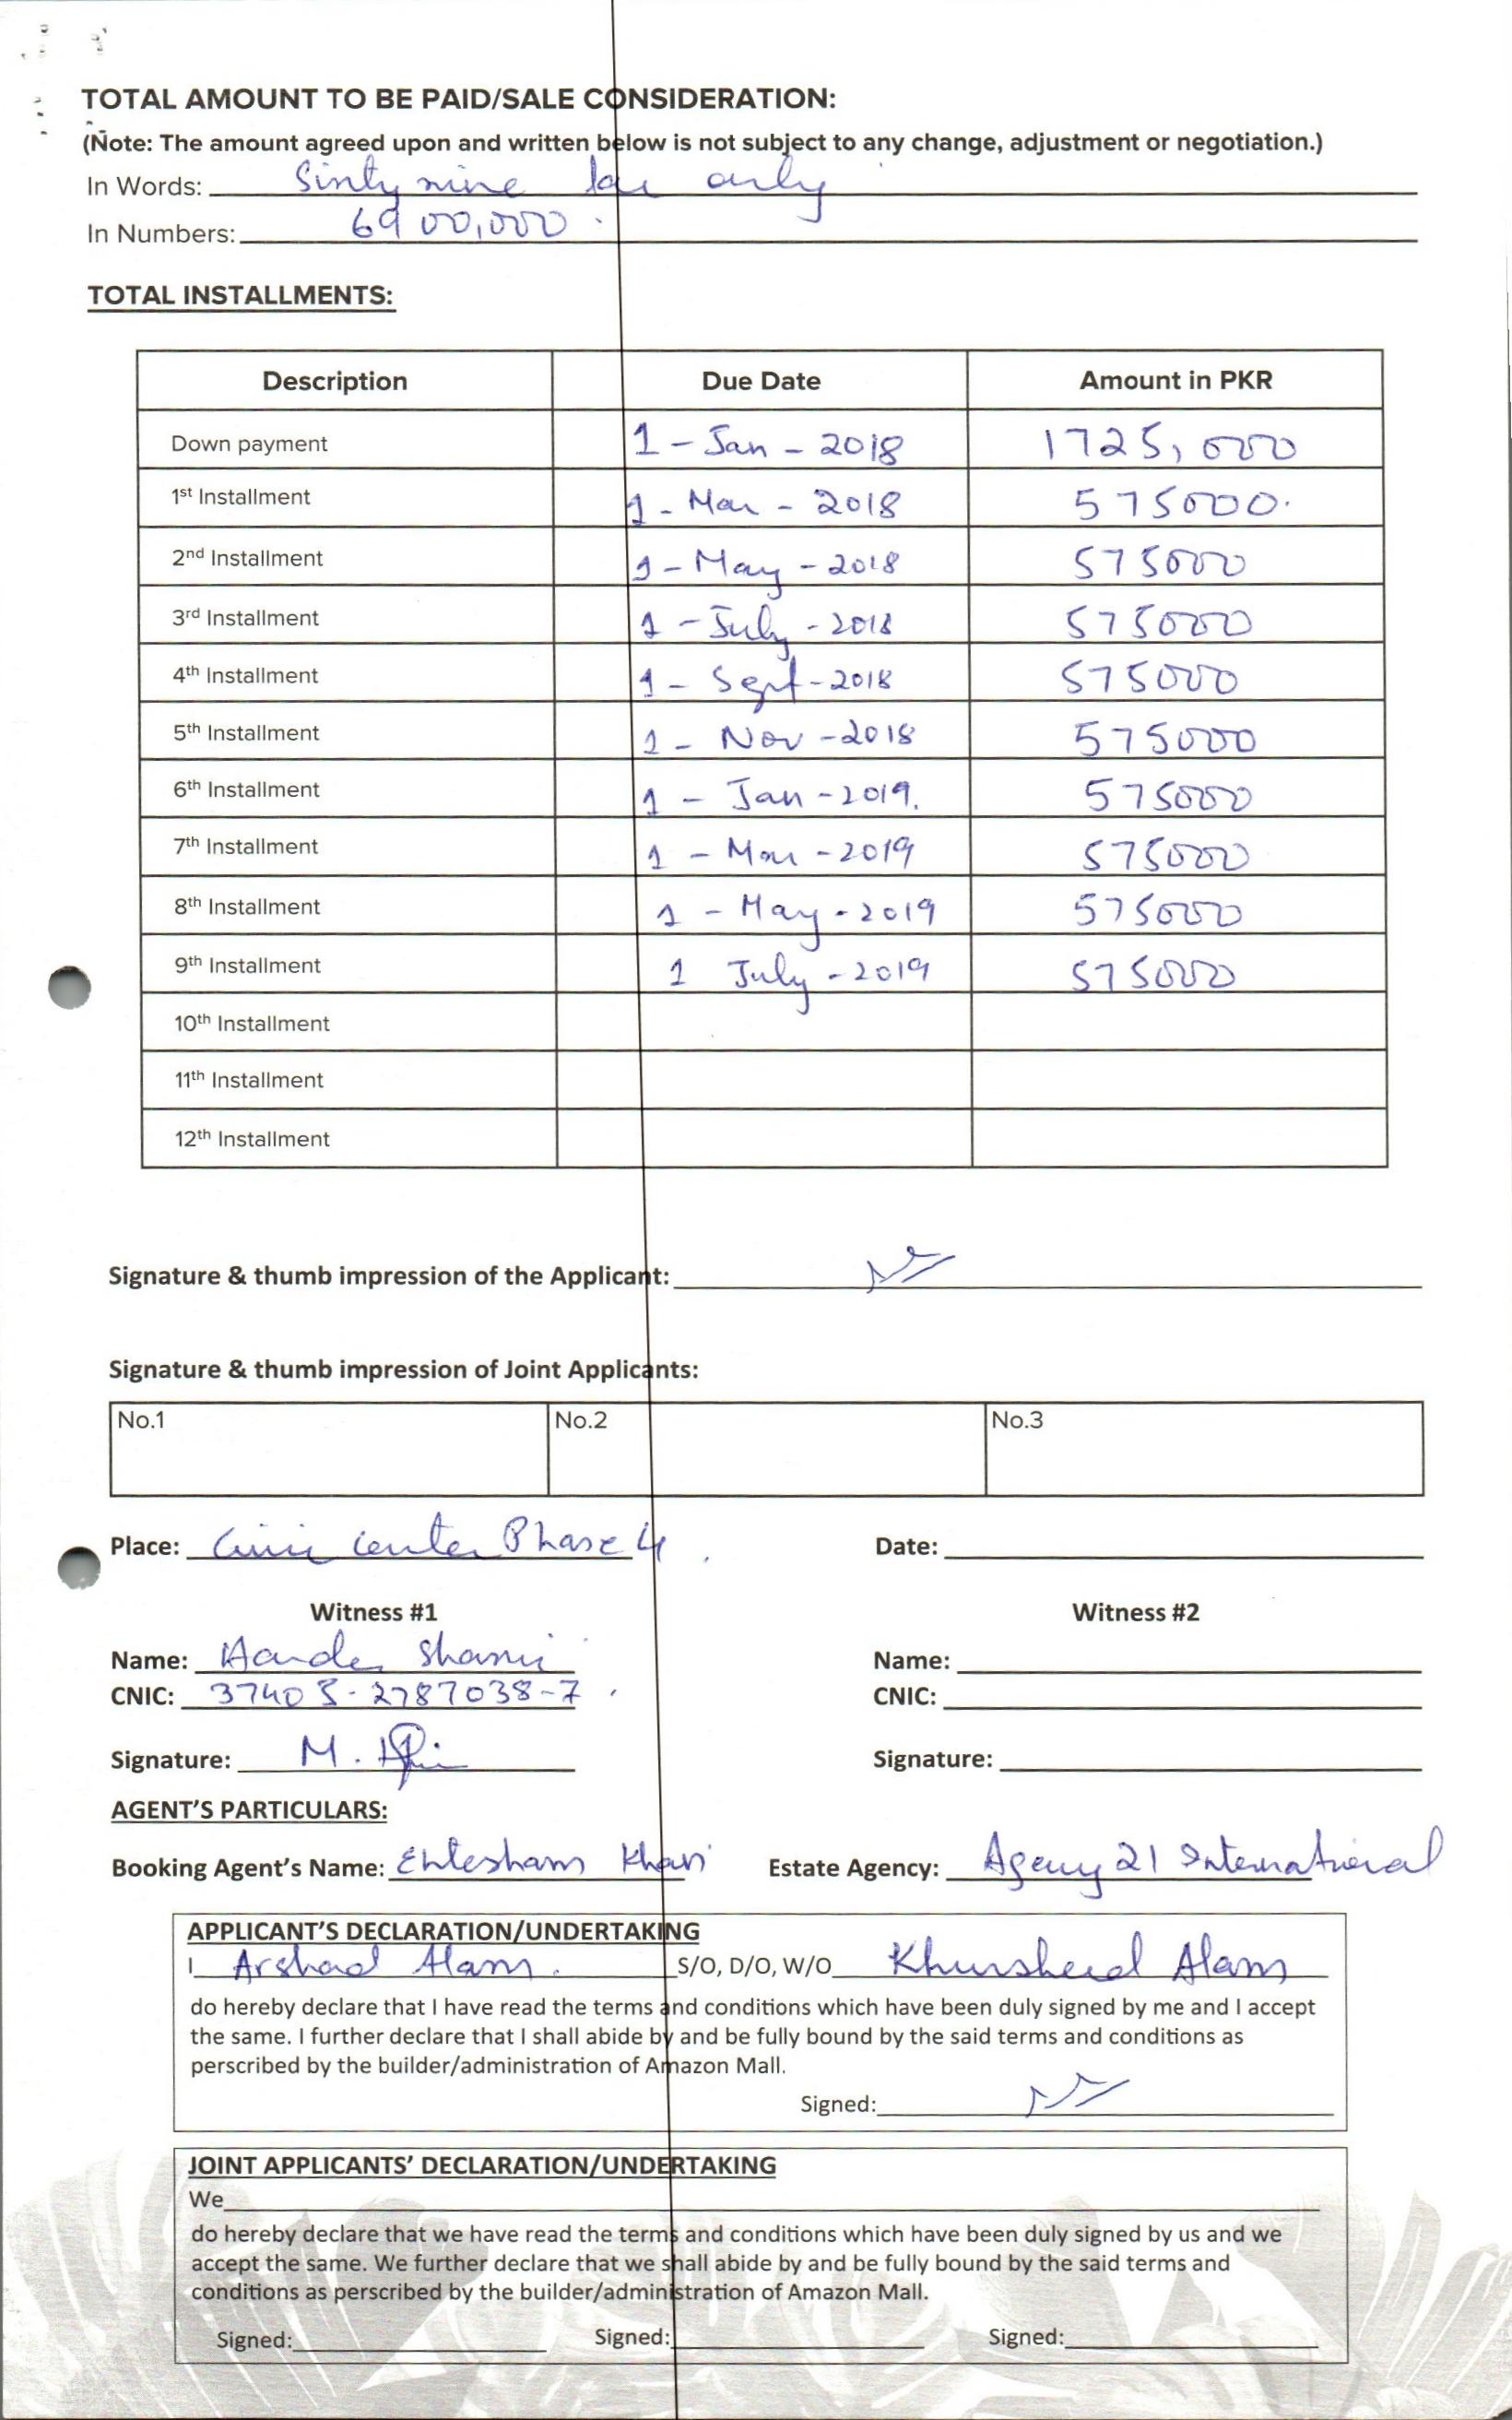 TOTAL AMOUNT TO BE PAID/SALE CONSIDERATION:
(Note: The amount agreed upon and written below is not subject to any change, adjustment or negotiation.)
In Words: Sinty nine lac only
In Numbers: 6900,000
TOTAL INSTALLMENTS:
Description Due Date Amount in PKR
Down payment 1 - Jan - 2018 1725,000
1st Installment 1 - Mar - 2018 575000.
2nd Installment 1 - May - 2018 575000
3rd Installment 1 - July - 2018 575000
4th Installment 1 - Sept - 2018 575000
5th Installment 1 - Nov - 2018 575000
6th Installment 1 - Jan - 2019. 575000
7th Installment 1 - Mar - 2019 575000
8th Installment 1 - May - 2019 575000
9th Installment 1 July - 2019 575000
10th Installment
11th Installment
12th Installment
Signature & thumb impression of the Applicant:
Signature & thumb impression of Joint Applicants:
No.1 No.2 No.3
Place: Civic Center Phase 4 Date:
Witness #1 Witness #2
Name: Name:
CNIC: 37405-2787038-7 CNIC:
Signature: M. Signature:
AGENT'S PARTICULARS:
Booking Agent's Name: Ehtesham Khan Estate Agency: Agency 21 International
APPLICANT'S DECLARATION/UNDERTAKING
I Arshad Alam. S/O, D/O, W/O Khursheed Alam
do hereby declare that I have read the terms and conditions which have been duly signed by me and I accept
the same. I further declare that I shall abide by and be fully bound by the said terms and conditions as
perscribed by the builder/administration of Amazon Mall.
Signed:
JOINT APPLICANTS' DECLARATION/UNDERTAKING
We
do hereby declare that we have read the terms and conditions which have been duly signed by us and we
accept the same. We further declare that we shall abide by and be fully bound by the said terms and
conditions as perscribed by the builder/administration of Amazon Mall.
Signed: Signed: Signed: